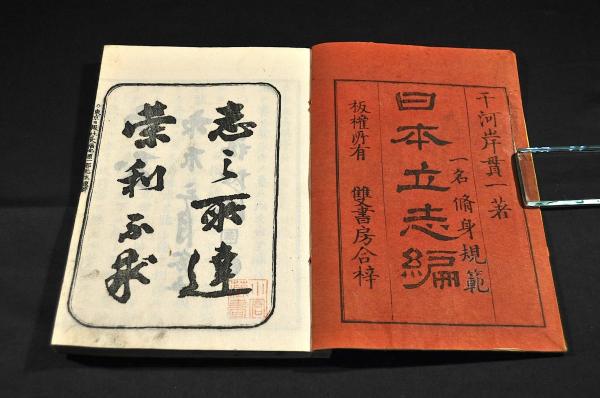 千河岸貫一著
一名 脩身規範
日本立志編
板權所有 雙書房合梓
志之所達
榮利不求